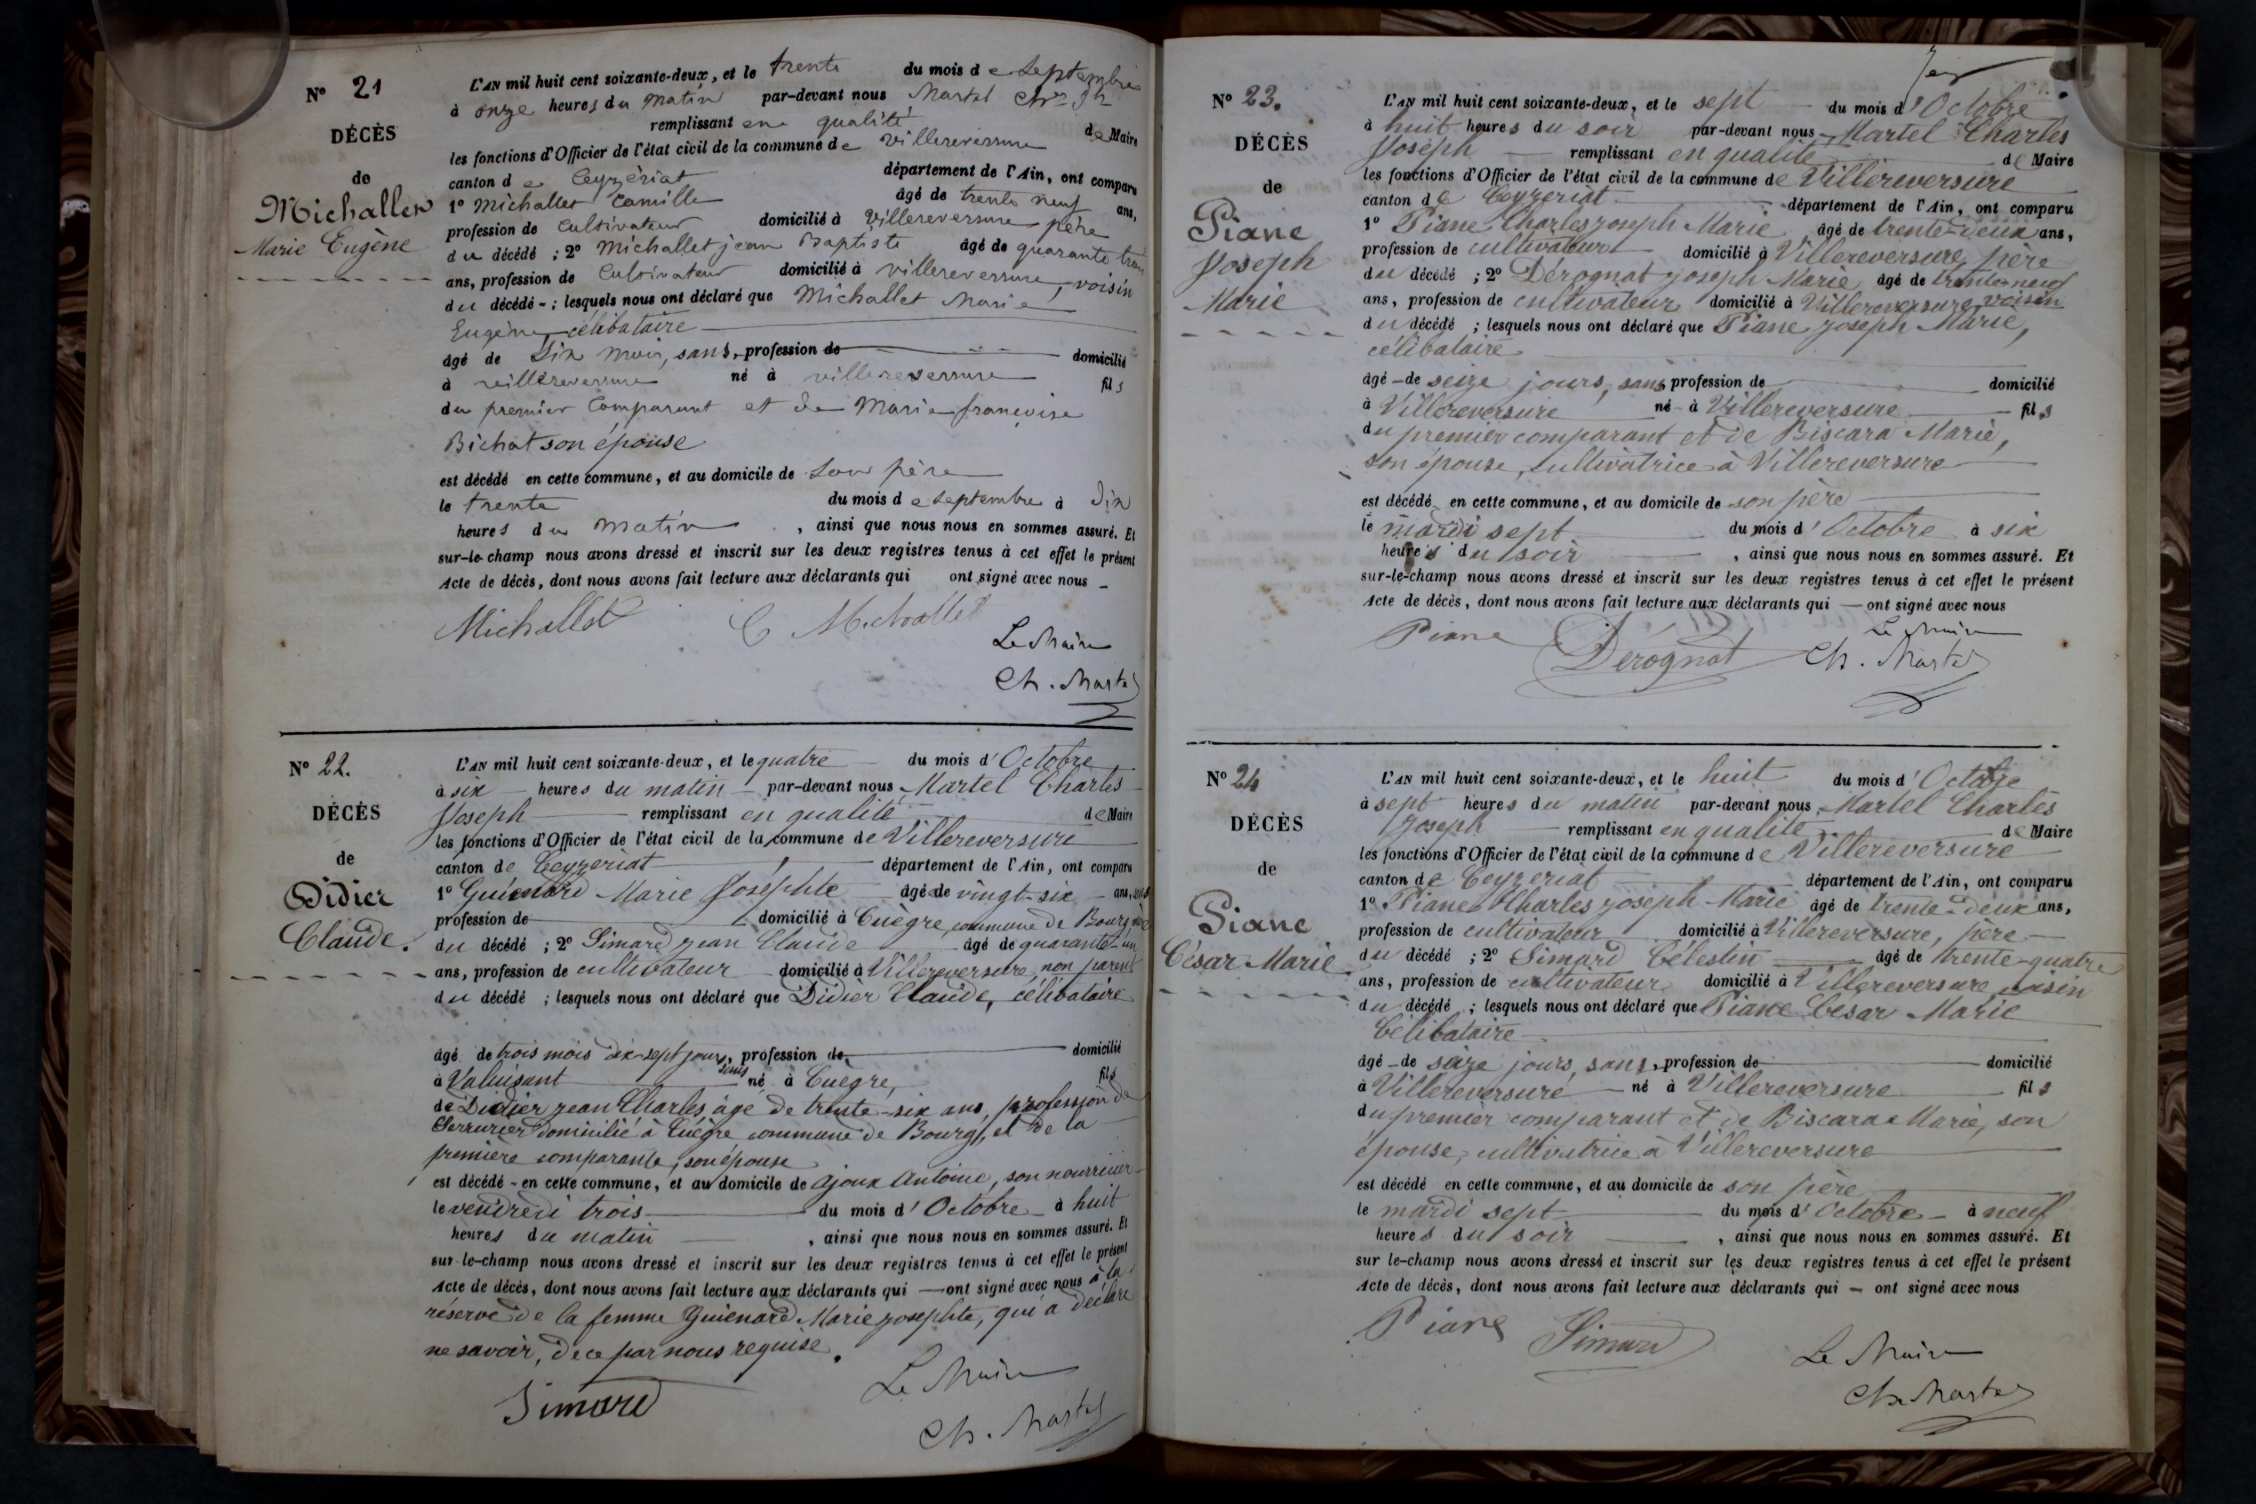 N° 21
DÉCÈS
de
Michallet
Marie Eugène
L'AN mil huit cent soixante-deux, et le trente du mois de Septembre
à onze heures du matin par-devant nous Martel Ch.les Jh
remplissant en qualité de Maire
les fonctions d'Officier de l'état civil de la commune de villereversure
canton de Ceyzériat département de l'Ain, ont comparu
1° Michallet Camille âgé de trente neuf ans,
profession de Cultivateur domicilié à villereversure père
du décédé ; 2° Michallet jean Baptiste âgé de quarante trois
ans, profession de Cultivateur domicilié à villereversure, voisin
du décédé - ; lesquels nous ont déclaré que Michallet Marie
Eugène, célibataire
âgé de Dix mois, sans profession de domicilié
à villereversure né à villereversure fils
du premier Comparant et de Marie françoise
Bichat son épouse
est décédé en cette commune, et au domicile de Son père
le trente du mois de septembre à Dix
heures du matin, ainsi que nous nous en sommes assuré. Et
sur-le-champ nous avons dressé et inscrit sur les deux registres tenus à cet effet le présent
Acte de décès, dont nous avons fait lecture aux déclarants qui ont signé avec nous
Michallet C Michallet
Le Maire
Ch. Martel
N° 22.
DÉCÈS
de
Didier
Claude.
L'AN mil huit cent soixante-deux, et le quatre du mois d'Octobre
à six heures du matin par-devant nous Martel Charles
Joseph remplissant en qualité de Maire
les fonctions d'Officier de l'état civil de la commune de Villereversure
canton de Ceyzeriat département de l'Ain, ont comparu
1° Guienard Marie Josephte âgé de vingt-six ans, sans
profession de domicilié à Cuègre, commune de Bourg, mère
du décédé ; 2° Simard jean Claude âgé de quarante-un
ans, profession de cultivateur domicilié à Villereversure, non parent
du décédé ; lesquels nous ont déclaré que Didier Claude, célibataire
âgé de trois mois dix-sept jours, sans profession de domicilié
à Valuisant né à Cuègre, fils
de Didier jean Charles, âgé de trente-six ans, profession de
Serrurier domicilié à Cuègre commune de Bourg, et de la
première comparante, son épouse
est décédé en cette commune, et au domicile de Ajoux Antoine, son nourricier
le vendredi trois du mois d'Octobre à huit
heures du matin, ainsi que nous nous en sommes assuré. Et
sur-le-champ nous avons dressé et inscrit sur les deux registres tenus à cet effet le présent
Acte de décès, dont nous avons fait lecture aux déclarants qui ont signé avec nous à la
réserve de la femme Guienard Marie josephte, qui a déclaré
ne savoir, de ce par nous requise.
Simard
Le Maire
Ch. Martel
N° 23.
DÉCÈS
de
Piane
Joseph
Marie
L'AN mil huit cent soixante-deux, et le sept du mois d'Octobre
à huit heures du soir par-devant nous Martel Charles
Joseph remplissant en qualité de Maire
les fonctions d'Officier de l'état civil de la commune de Villereversure
canton de Ceyzeriat département de l'Ain, ont comparu
1° Piane Charles joseph Marie âgé de trente-deux ans,
profession de cultivateur domicilié à Villereversure, père
du décédé ; 2° Dérognat joseph Marie âgé de trente-neuf
ans, profession de cultivateur domicilié à Villereversure, voisin
du décédé ; lesquels nous ont déclaré que Piane joseph Marie,
célibataire
âgé de seize jours, sans profession de domicilié
à Villereversure né à Villereversure fils
du premier comparant et de Biscara Marie,
son épouse, cultivatrice à Villereversure
est décédé en cette commune, et au domicile de son père
le mardi sept du mois d'Octobre à six
heures du soir, ainsi que nous nous en sommes assuré. Et
sur-le-champ nous avons dressé et inscrit sur les deux registres tenus à cet effet le présent
Acte de décès, dont nous avons fait lecture aux déclarants qui ont signé avec nous
Piane Dérognat
Le Maire
Ch. Martel
N° 24
DÉCÈS
de
Piane
César Marie
L'AN mil huit cent soixante-deux, et le huit du mois d'Octobre
à sept heures du matin par-devant nous Martel Charles
Joseph remplissant en qualité de Maire
les fonctions d'Officier de l'état civil de la commune de Villereversure
canton de Ceyzeriat département de l'Ain, ont comparu
1° Piane Charles joseph Marie âgé de trente-deux ans,
profession de cultivateur domicilié à Villereversure, père
du décédé ; 2° Simard Célestin âgé de trente-quatre
ans, profession de cultivateur domicilié à Villereversure, voisin
du décédé ; lesquels nous ont déclaré que Piane César Marie
Célibataire
âgé de seize jours, sans profession de domicilié
à Villereversure né à Villereversure fils
du premier comparant et de Biscara Marie, son
épouse, cultivatrice à Villereversure
est décédé en cette commune, et au domicile de son père
le mardi sept du mois d'Octobre à neuf
heures du soir, ainsi que nous nous en sommes assuré. Et
sur le-champ nous avons dressé et inscrit sur les deux registres tenus à cet effet le présent
Acte de décès, dont nous avons fait lecture aux déclarants qui ont signé avec nous
Piane Simard
Le Maire
Ch. Martel